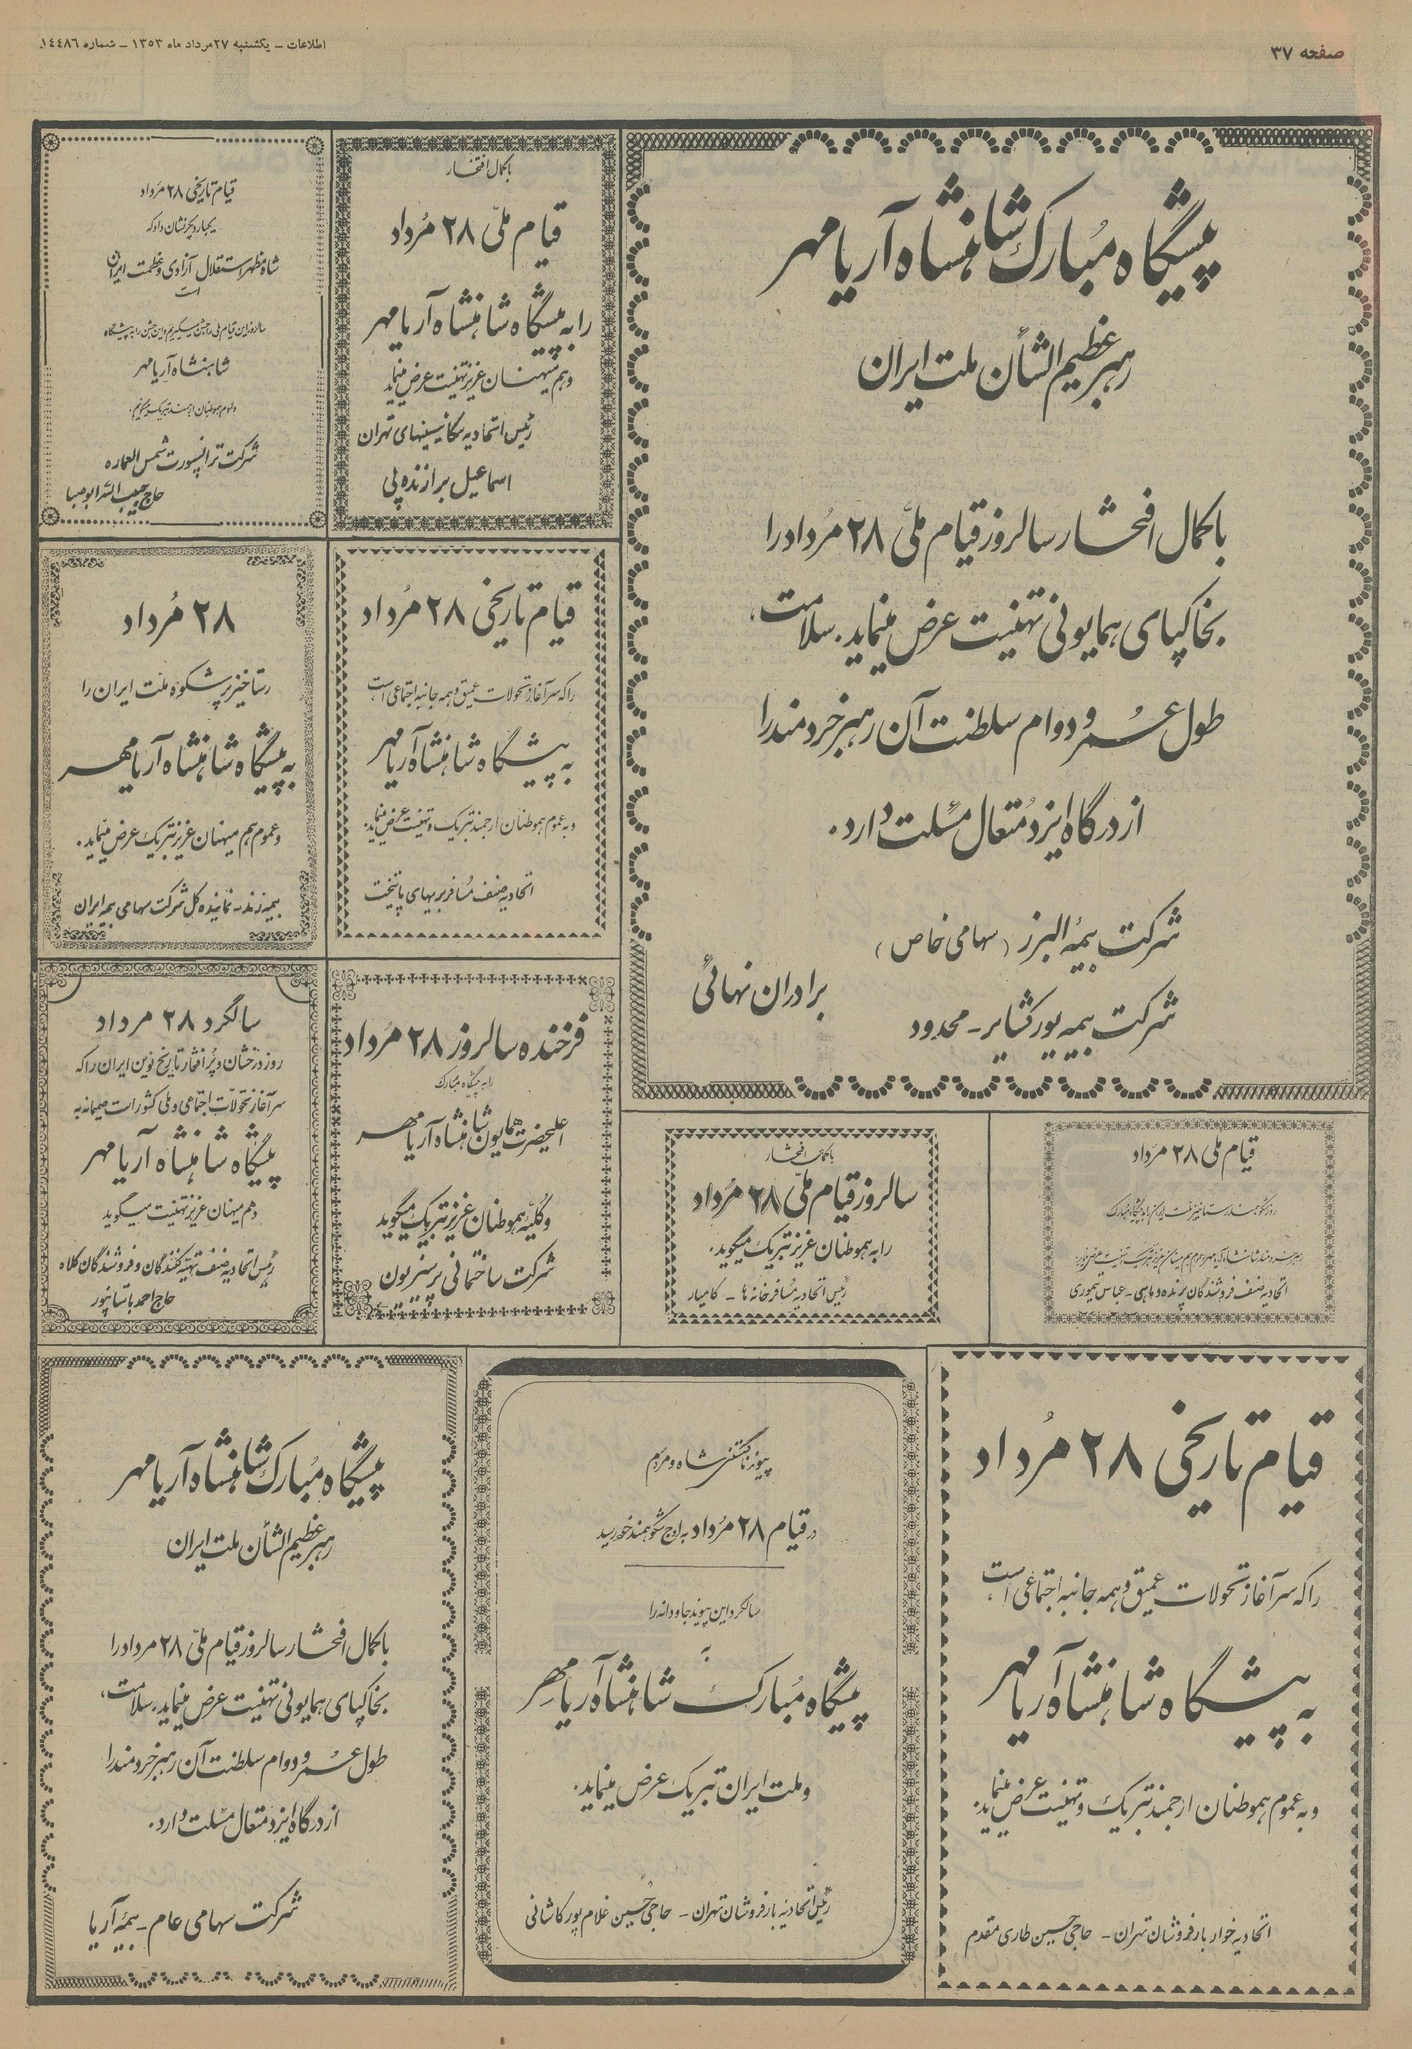 صفحه ۳۷
اطلاعات - یکشنبه ۲۷ مرداد ماه ۱۳۵۳ - شماره ۱۴۴۸۶
پیشگاه مبارک شاهنشاه آریامهر
رهبر عظیم‌الشأن ملت ایران
با کمال افتخار سالروز قیام ملّی ۲۸ مُرداد را
بخاکپای همایونی تهنیت عرض مینماید. سلامت،
طول عمر و دوام سلطنت آن رهبر خردمند را
از درگاه ایزد مُتعال مسئلت دارد.
شرکت بیمهٔ البرز (سهامی خاص)
برادران نهائی
شرکت بیمه یورکشایر - محدود
با کمال افتخار
قیام ملّی ۲۸ مُرداد
را به پیشگاه شاهنشاه آریامهر
و هم میهنان عزیز تهنیت عرض مینماید
رئیس اتحادیه مکانیسینهای تهران
اسماعیل برازنده پی
قیام تاریخی ۲۸ مُرداد
یکبار دیگر نشان داد که
شاه مظهر استقلال آزادی و عظمت ایران
است
سالروز این قیام ملی را جشن میگیریم و این جشن را به پیشگاه
شاهنشاه آریامهر
و عموم هموطنان ارجمند تبریک میگوئیم.
شرکت ترانسپورت شمس العماره
حاج حبیب الله ابوصبا
قیام تاریخی ۲۸ مُرداد
را که سرآغاز تحولات عمیق و همه جانبه اجتماعی است
به پیشگاه شاهنشاه آریامهر
و به عموم هموطنان ارجمند تبریک و تهنیت عرض مینماید.
اتحادیه صنف مُسافربریهای پایتخت
۲۸ مُرداد
رستاخیز پرشکوه ملت ایران را
به پیشگاه شاهنشاه آریامهر
و عموم هم میهنان عزیز تبریک عرض مینماید.
بیمه زند - نماینده کل شرکت سهامی بیمه ایران
فرخنده سالروز ۲۸ مُرداد
را به پیشگاه مبارک
اعلیحضرت همایون شاهنشاه آریامهر
و کلیّه هموطنان عزیز تبریک میگوید
شرکت ساختمانی پرسپریون
سالگرد ۲۸ مرداد
روز درخشان و پُر افتخار تاریخ نوین ایران را که
سرآغاز تحوّلات اجتماعی و ملی کشور است صمیمانه به
پیشگاه شاهنشاه آریامهر
و هم میهنان عزیز تهنیت میگوید
رئیس اتحادیه صنف تهیه کنندگان و فروشندگان کلاه
حاج احمد پاسانپور
قیام ملی ۲۸ مرداد
اتحادیه صنف فروشندگان پرنده و ماهی - عباس تیموری
با کمال افتخار
سالروز قیام ملّی ۲۸ مُرداد
را به هموطنان عزیز تبریک میگوید.
رئیس اتحادیه مُسافرخانه ها - کامیار
قیام تاریخی ۲۸ مُرداد
را که سرآغاز تحولات عمیق و همه جانبه اجتماعی است،
به پیشگاه شاهنشاه آریامهر
و به عموم هموطنان ارجمند تبریک و تهنیت عرض مینماید.
اتحادیه خواربارفروشان تهران - حاجی حسین طاری مقدم
پیوند ناگسستنی شاه و مردم
در قیام ۲۸ مُرداد به اوج شکوهمند خود رسید
سالگرد این پیوند جاودانه را
به
پیشگاه مُبارک شاهنشاه آریامهر
و ملت ایران تبریک عرض مینماید.
رئیس اتحادیه بارفروشان تهران - حاجی حسین غلام پور کاشانی
پیشگاه مُبارک شاهنشاه آریامهر
رهبر عظیم الشأن ملت ایران
با کمال افتخار سالروز قیام ملّی ۲۸ مرداد را
بخاکپای همایونی تهنیت عرض مینماید. سلامت،
طول عمر و دوام سلطنت آن رهبر خردمند را
از درگاه ایزد متعال مسئلت دارد.
شرکت سهامی عام - بیمهٔ آریا